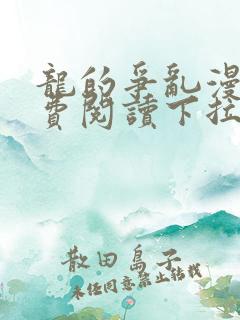 龍的爭亂漫
費閱讀下拉
散田島子
未經同意禁止轉載